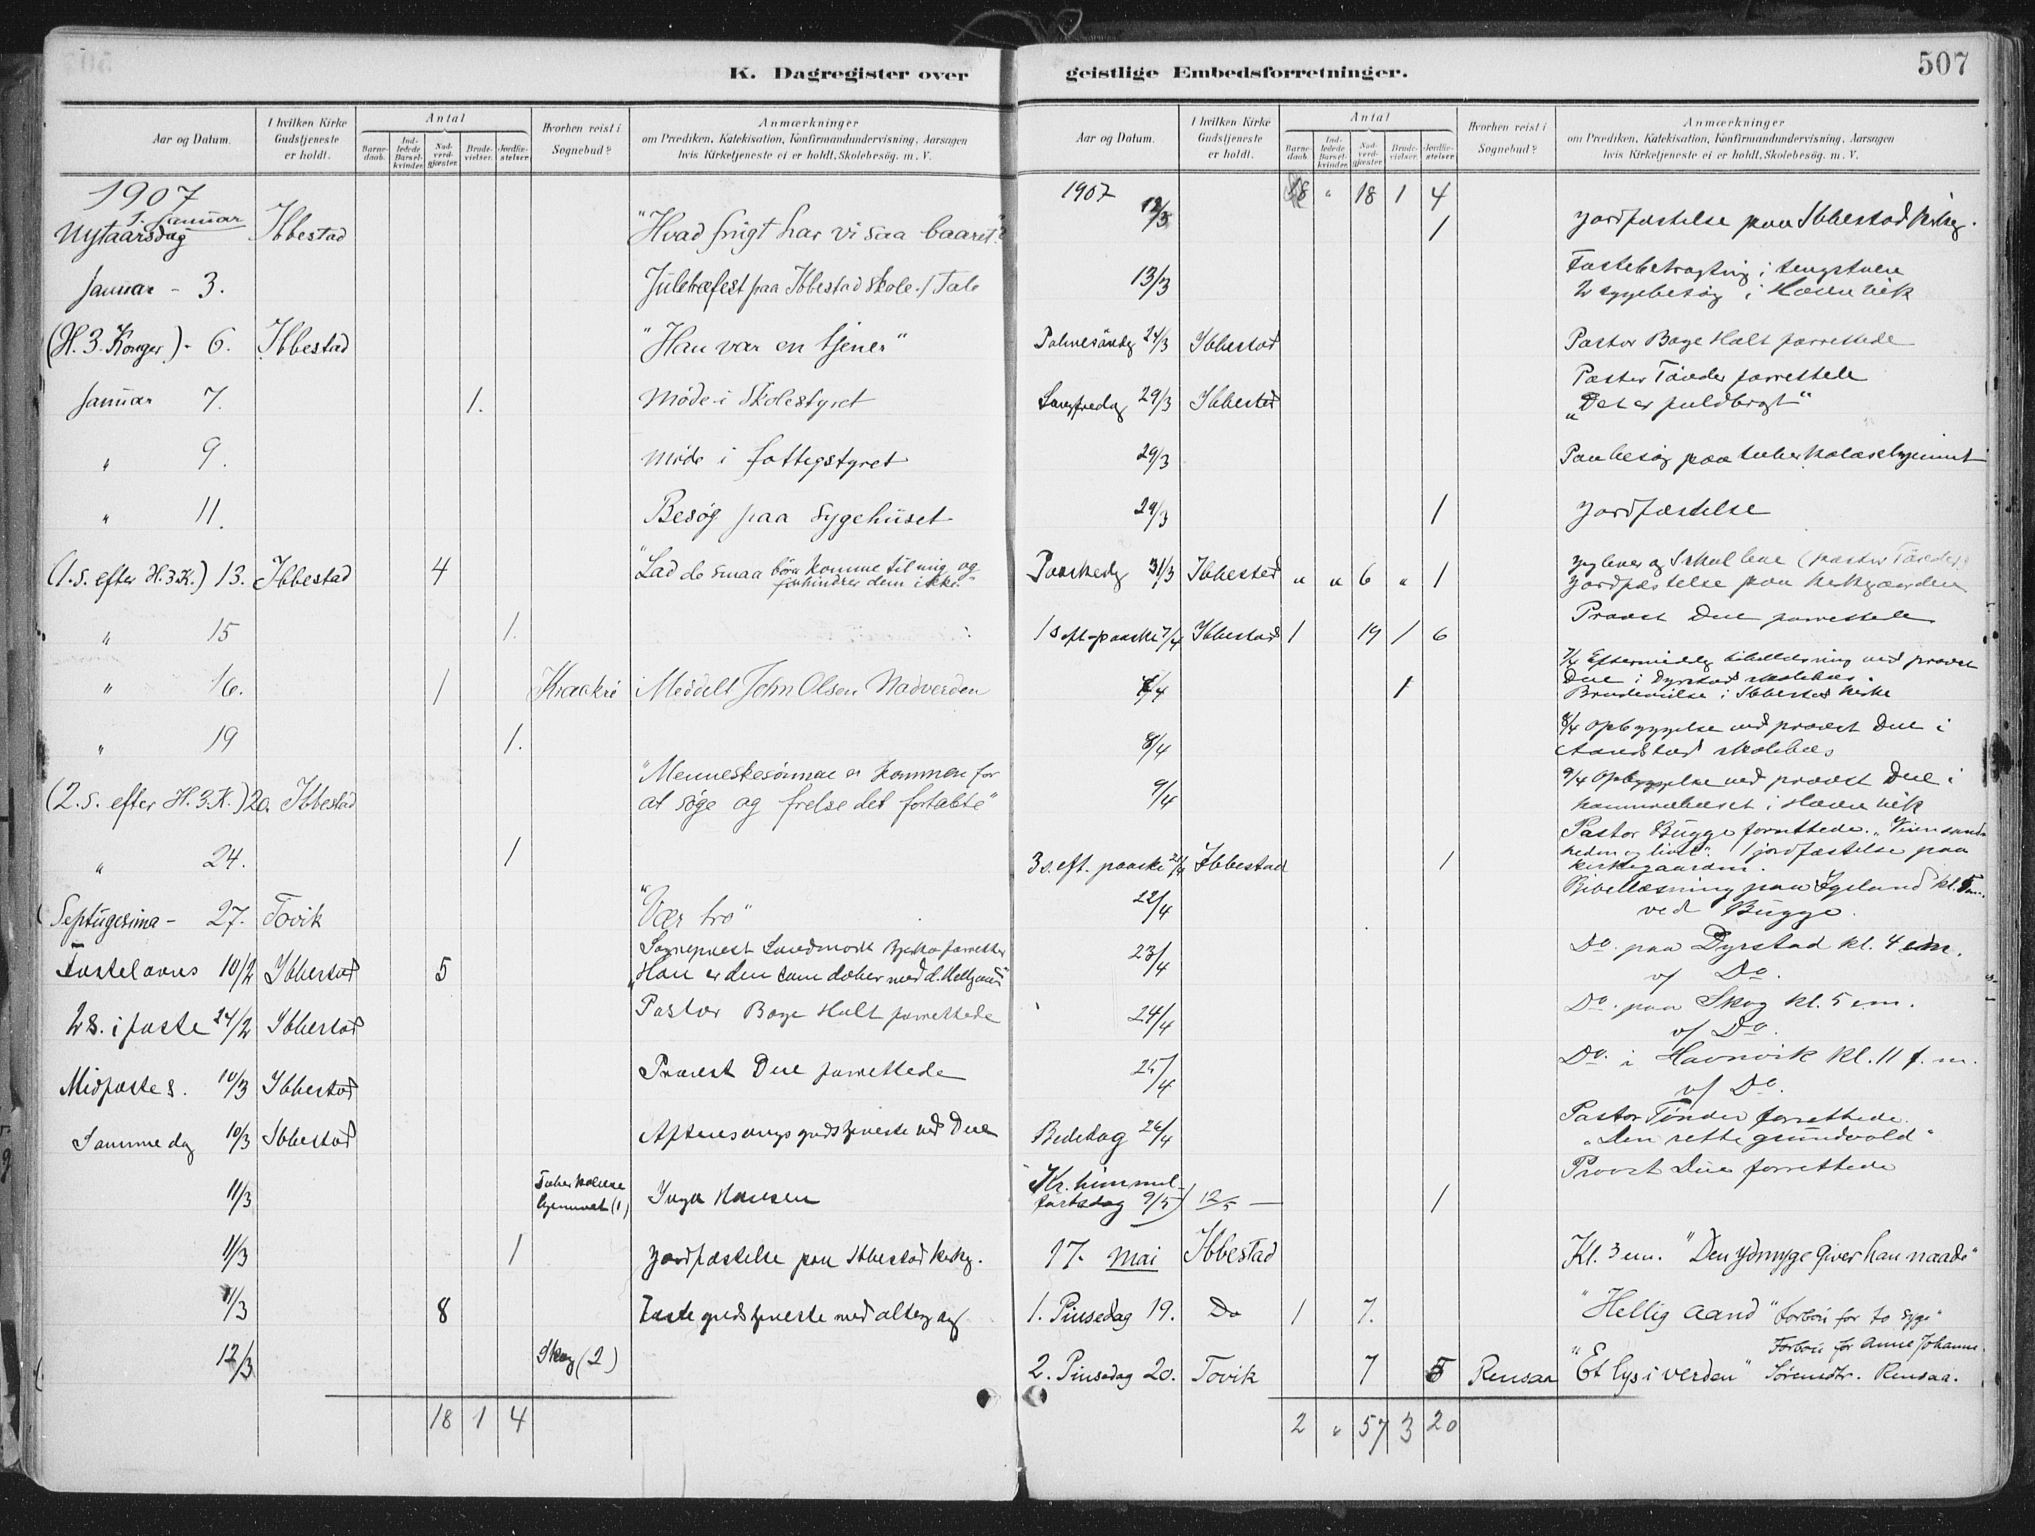 K. Dagregister over
Aar og Datum.
I hvilken Kirke Gudstjeneste er holdt.
Antal
Barnedaab.
Indledede Barselkvinder.
Nadverdgjæster.
Brudevielser.
Jordfæstelser.
Hvorhen reist i Sognebud?
Anmærkninger
om Prædiken, Katekisation, Konfirmandundervisning, Aarsagen
hvis Kirketjeneste ei er holdt, Skolebesøg. m. V.
1907
1. Januar
Nytaarsdag Ibbestad "Hvad frugt har vi saa baaret?"
Januar - 3. Juletræfest paa Ibbestad Skole. / Tale
(H. 3. Konger) - 6. Ibbestad "Han var en tjener"
Januar 7. 1. Møde i Skolestyret
" 9. Møde i fattigstyret
" 11. Besøg paa Sygehuset
(1. s. efter H. 3. K.) 13. Ibbestad 4 "Lad de smaa børn komme til mig og
forhindrer dem ikke."
" 15 1.
" 16. 1 Kraakrø Meddelt John Olsen Nadverden
" 19 1.
"Menneskesønnen er kommen for
(2. s. efter H. 3. K.) 20. Ibbestad at søge og frelse det fortabte"
" 24. 1
Septugesima - 27. Tovik "Vær tro"
Sogneprest Sandmodt forretter
Fastelavns 10/2 Ibbestad 5 "Han er den som døber med d. Helligaand"
2 s. i faste 24/2 Ibbestad Pastor Bage Holt forrettede
Midfaste s. 10/3 Ibbestad Provst Due forrettede
Samme dag 10/3 Ibbestad Aftensangsgudstjeneste ved Due
11/3 Tuberkulosehjemmet (1) Inga Hansen
11/3 1 Jordfæstelse paa Ibbestad kirkeg.
11/3 8 Fastegudstjeneste med alterg.
12/3 Skog (2)
18 1 4
geistlige Embedsforretninger.
507
Aar og Datum.
I hvilken Kirke Gudstjeneste er holdt.
Antal
Barnedaab.
Indledede Barselkvinder.
Nadverdgjæster.
Brudevielser.
Jordfæstelser.
Hvorhen reist i Sognebud?
Anmærkninger
om Prædiken, Katekisation, Konfirmandundervisning, Aarsagen
hvis Kirketjeneste ei er holdt, Skolebesøg. m. V.
1907 " 18 1 4
12/3 1 Jordfæstelse paa Ibbestad kirkeg.
13/3 Fastebetragtning i
2 sygebesøg i Havnvik
Palmesøndag 24/3 Ibbestad Pastor Bage Holt forrettede
Pastor Tønder forrettede
Langfredag 29/3 Ibbestad "Det er fuldbragt"
29/3 Paa besøg paa tuberkulosehjemmet
29/3 1 Jordfæstelse
Jeg lever og I skal leve (pastor Tønder)
Paaskedag 31/3 Ibbestad " " 6 " 1 Jordfæstelse paa kirkegaarden
1 s. eft. paaske 7/4 Ibbestad 1 19 1 6 Provst Due forrettede
7/4 Eftermiddag bibellæsning ved provst
Due i Dyrstad skolehus.
7/4 1 Brudevielse i Ibbestad kirke
8/4 8/4 Opbyggelse ved provst Due i
Aandstad skolehus
9/4 9/4 Opbyggelse ved provst Due i
kommunehuset i Havnvik
Pastor Bugge forrettede. "Veien sand-
3 s. eft. paaske 21/4 Ibbestad 1 heden og livet". 1 jordfæstelse paa
kirkegaarden.
22/4 Bibellæsning paa Igeland kl. 5 em.
ved Bugge.
23/4 Do. paa Dyrstad kl. 4 em.
v/ Do.
24/4 Do. paa Skog kl. 5 em.
v/ Do.
25/4 Do. i Havnvik kl. 11 f. m.
v/ Do.
Bededag 26/4 Pastor Tønder forrettede.
"Den rette grundvold"
Kr. himmel-
fartsdag 9/5) 12/5 — 1 Provst Due forrettede
17. Mai Ibbestad Kl. 3 em. "Den ydmyge giver han naade"
1. Pinsedag 19. Do 1 7. "Hellig aand" Forbøn for to syge
2. Pinsedag 20. Tovik 7 5 Rensaa "Et lys i verden" Forbøn for Anne Johanne
Sørensdtr. Rensaa.
2 " 57 3 20